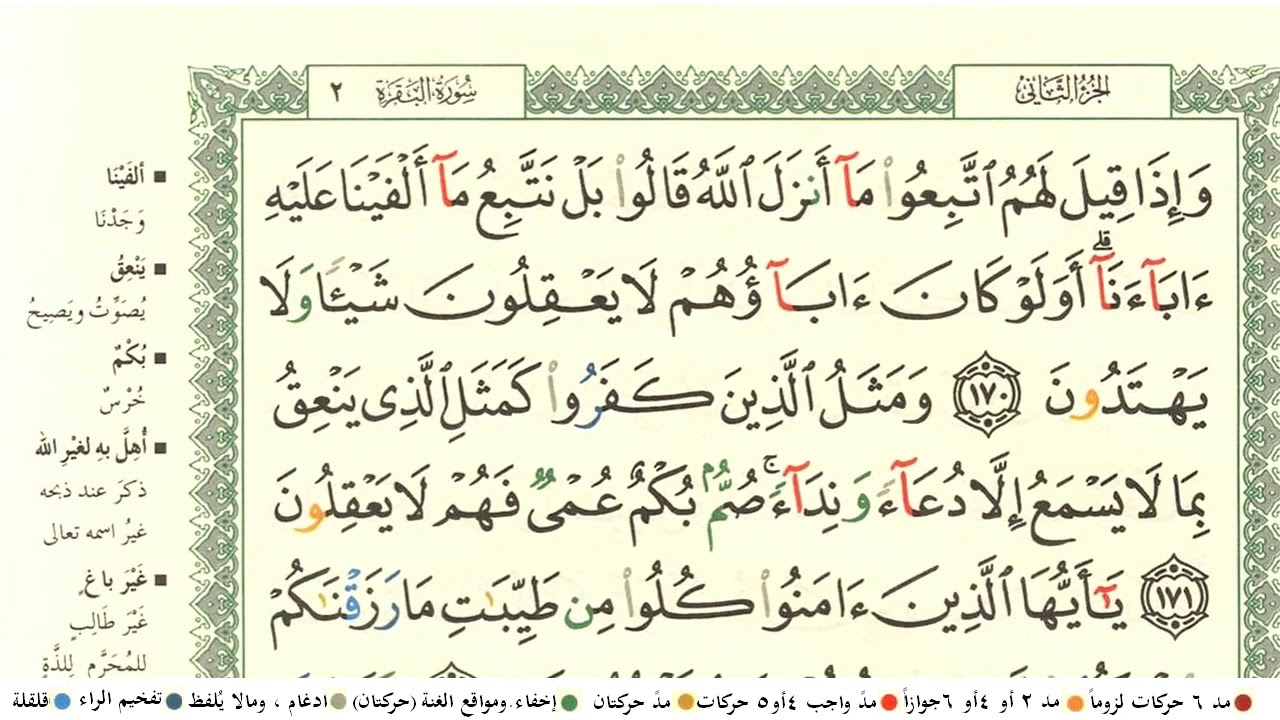 الجزء الثاني
سورة البقرة ٢
وَإِذَا قِيلَ لَهُمُ ٱتَّبِعُوا۟ مَآ أَنزَلَ ٱللَّهُ قَالُوا۟ بَلْ نَتَّبِعُ مَآ أَلْفَيْنَا عَلَيْهِ
ءَابَآءَنَآ ۗ أَوَلَوْ كَانَ ءَابَآؤُهُمْ لَا يَعْقِلُونَ شَيْـًٔا وَلَا
يَهْتَدُونَ ١٧٠ وَمَثَلُ ٱلَّذِينَ كَفَرُوا۟ كَمَثَلِ ٱلَّذِى يَنْعِقُ
بِمَا لَا يَسْمَعُ إِلَّا دُعَآءً وَنِدَآءً ۚ صُمٌّۢ بُكْمٌ عُمْىٌ فَهُمْ لَا يَعْقِلُونَ
١٧١ يَـٰٓأَيُّهَا ٱلَّذِينَ ءَامَنُوا۟ كُلُوا۟ مِن طَيِّبَـٰتِ مَا رَزَقْنَـٰكُمْ
■ ألفَيْنَا
وَجَدْنَا
■ يَنْعِقُ
يُصَوِّتُ ويَصِيحُ
■ بُكْمٌ
خُرْسٌ
■ أُهِلَّ بِهِ لغيْرِ الله
ذكرَ عند ذبحه
غيرُ اسمه تعالى
■ غَيْرَ باغٍ
غَيْرَ طَالِبٍ
للمُحَرَّم لِلذَّةٍ
مد ٦ حركات لزوماً مد ٢ أو ٤ أو ٦ جوازاً مدّ واجب ٤ أو ٥ حركات مدّ حركتان إخفاء، ومواقع الغنة (حركتان) ادغام ، ومالا يُلفظ تفخيم الراء قلقلة